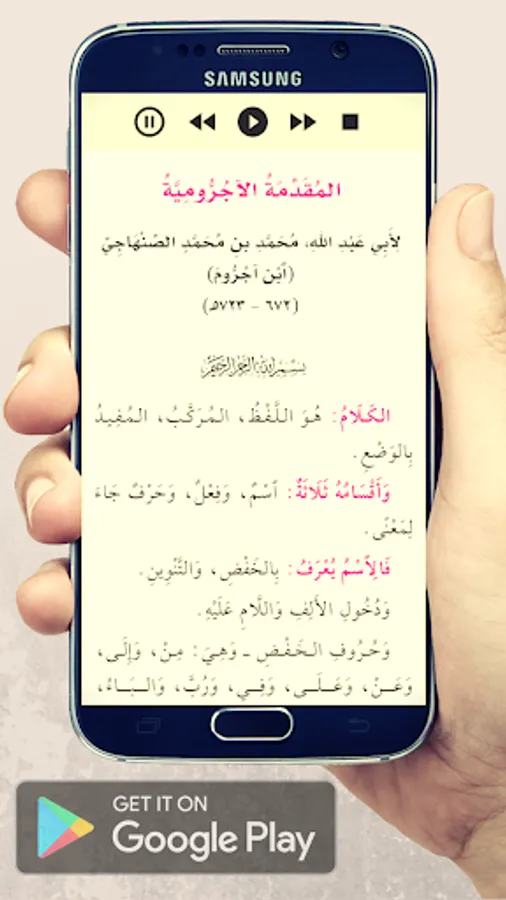 SAMSUNG
المُقَدِّمَةُ الآجُرُّومِيَّةُ
لِأَبِي عَبْدِ اللهِ، مُحَمَّدِ بنِ مُحَمَّدِ الصَّنْهَاجِيِّ
(ٱبْنِ آجُرُومَ)
(٦٧٢ - ٧٢٣هـ)
بِسْمِ اللهِ الرَّحْمَنِ الرَّحِيمِ
الكَلَامُ: هُوَ اللَّفْظُ، المُرَكَّبُ، المُفِيدُ
بِالوَضْعِ.
وَأَقْسَامُهُ ثَلَاثَةٌ: ٱسْمٌ، وَفِعْلٌ، وَحَرْفٌ جَاءَ
لِمَعْنًى.
فَالِاسْمُ يُعْرَفُ: بِالخَفْضِ، وَالتَّنْوِينِ.
وَدُخُولِ الأَلِفِ وَاللَّامِ عَلَيْهِ.
وَحُرُوفِ الخَفْضِ ـ وَهِيَ: مِنْ، وَإِلَى،
وَعَنْ، وَعَلَى، وَفِي، وَرُبَّ، وَالبَاءُ،
GET IT ON
Google Play